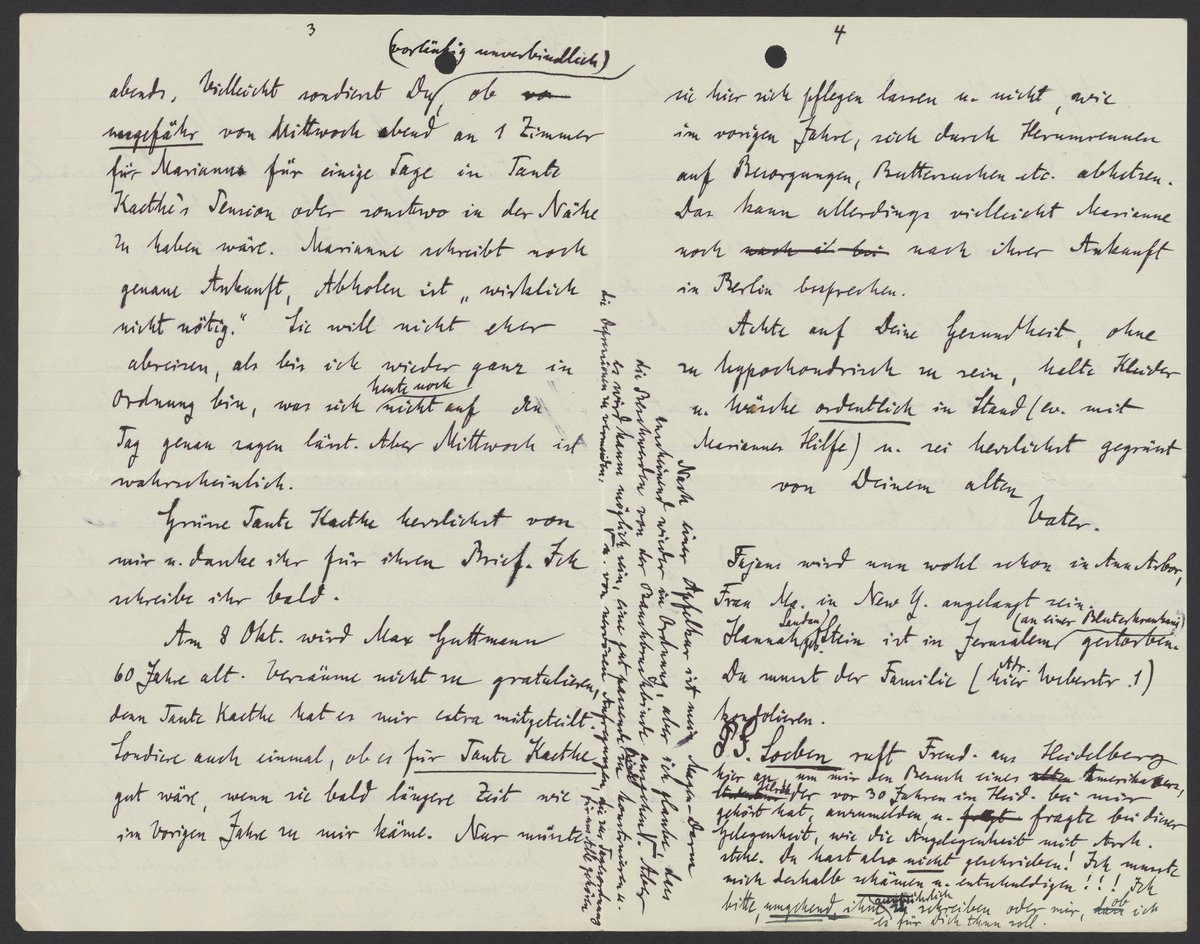 3
(vorläufig unverbindlich)
abends. Vielleicht sondierst Du, ob
ungefähr von Mittwoch abend an 1 Zimmer
für Marianne für einige Tage in Tante
Kaethe's Pension oder sonstwo in der Nähe
zu haben wäre. Marianne schreibt noch
genaue Ankunft, Abholen ist „wirklich
nicht nötig." Sie will nicht eher
abreisen, als bis ich wieder ganz in
heute noch
Ordnung bin, was sich nicht auf den
Tag genau sagen lässt. Aber Mittwoch ist
wahrscheinlich.
Grüsse Tante Kaethe herzlichst von
mir u. danke ihr für ihren Brief. Ich
schreibe ihr bald.
Am 8 Okt. wird Max Guttmann
60 Jahre alt. Versäume nicht zu gratulieren,
denn Tante Kaethe hat es mir extra mitgeteilt.
Sondiere auch einmal, ob es für Tante Kaethe
gut wäre, wenn sie bald längere Zeit wie
im vorigen Jahre zu mir käme. Nur müsste
4
sie hier sich pflegen lassen u. nicht, wie
im vorigen Jahre, sich durch Herumrennen
auf Besorgungen, Buttersuchen etc. abhetzen.
Das kann allerdings vielleicht Marianne
noch nach ihrer Ankunft
in Berlin besprechen.
Achte auf Deine Gesundheit, ohne
zu hypochondrisch zu sein, halte Kleider
u. Wäsche ordentlich in Stand (ev. mit
Mariannes Hilfe) u. sei herzlichst gegrüsst
von Deinem alten
Vater.
Fajans wird nun wohl schon in Ann Arbor,
Frau Ma. in New Y. angelangt sein.
Landau (an einer Blutserkrankung)
Hannah geb. Stein ist in Jerusalem gestorben.
Adr.
Du musst der Familie (hier Weberstr. 1)
kondolieren.
PS. Loeben ruft Freud. aus Heidelberg
hier an, um mir den Besuch eines Amerikaners,
der vor 30 Jahren in Heid. bei mir
gehört hat, anzumelden u. fragte bei dieser
Gelegenheit, wie die Angelegenheit mit Arch.
stehe. Du hast also nicht geschrieben! Ich musste
mich deshalb schämen u. entschuldigen!!! Ich
ausführlich
bitte, umgehend, ihm zu schreiben oder mir, ob ich
es für Dich thun soll.
Nach einer Apfelkur ist mein Magen-Darm
anscheinend wieder in Ordnung, aber ich glaube, dass
die Beschwerden von der Bauchbruchbinde ausgehen. Aber
es wird kaum möglich sein, eine gut passende zu konstruieren u.
die Depressionen zu vermeiden.
u. von nervösen Aufregungen, die zur Tagesordnung